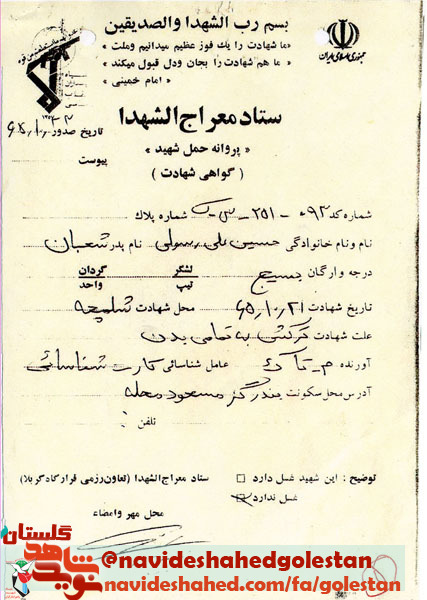 بسم رب الشهدا والصدیقین
«ما شهادت را یك فوز عظیم میدانیم وملت
ما هم شهادت را بجان ودل قبول میکند »
« امام خمینی »
جمهوری اسلامی ایران
ستاد معراج الشهدا
« پروانه حمل شهید »
( گواهی شهادت )
تاریخ صدور
پیوست
شماره کد ۰۹۳ - ۲۵۱ - شماره پلاك
نام ونام خانوادگی حسین علی رسولی نام پدر شعبان
درجه وارگان بسیج لشگر گردان
تیپ واحد
تاریخ شهادت ۶۵/۱۰/۲۱ محل شهادت شلمچه
علت شهادت ترکش به تمامی بدن
آورنده عامل شناسائی کارت شناسائی
آدرس محل سکونت بندرگز مسعود محله
تلفن :
توضیح : این شهید غسل دارد □
غسل ندارد
ستاد معراج الشهدا (تعاون رزمی قرارگاه کربلا)
محل مهر وامضاء
گلستان
نوید شاهد
@navideshahedgolestan
navideshahed.com/fa/golestan